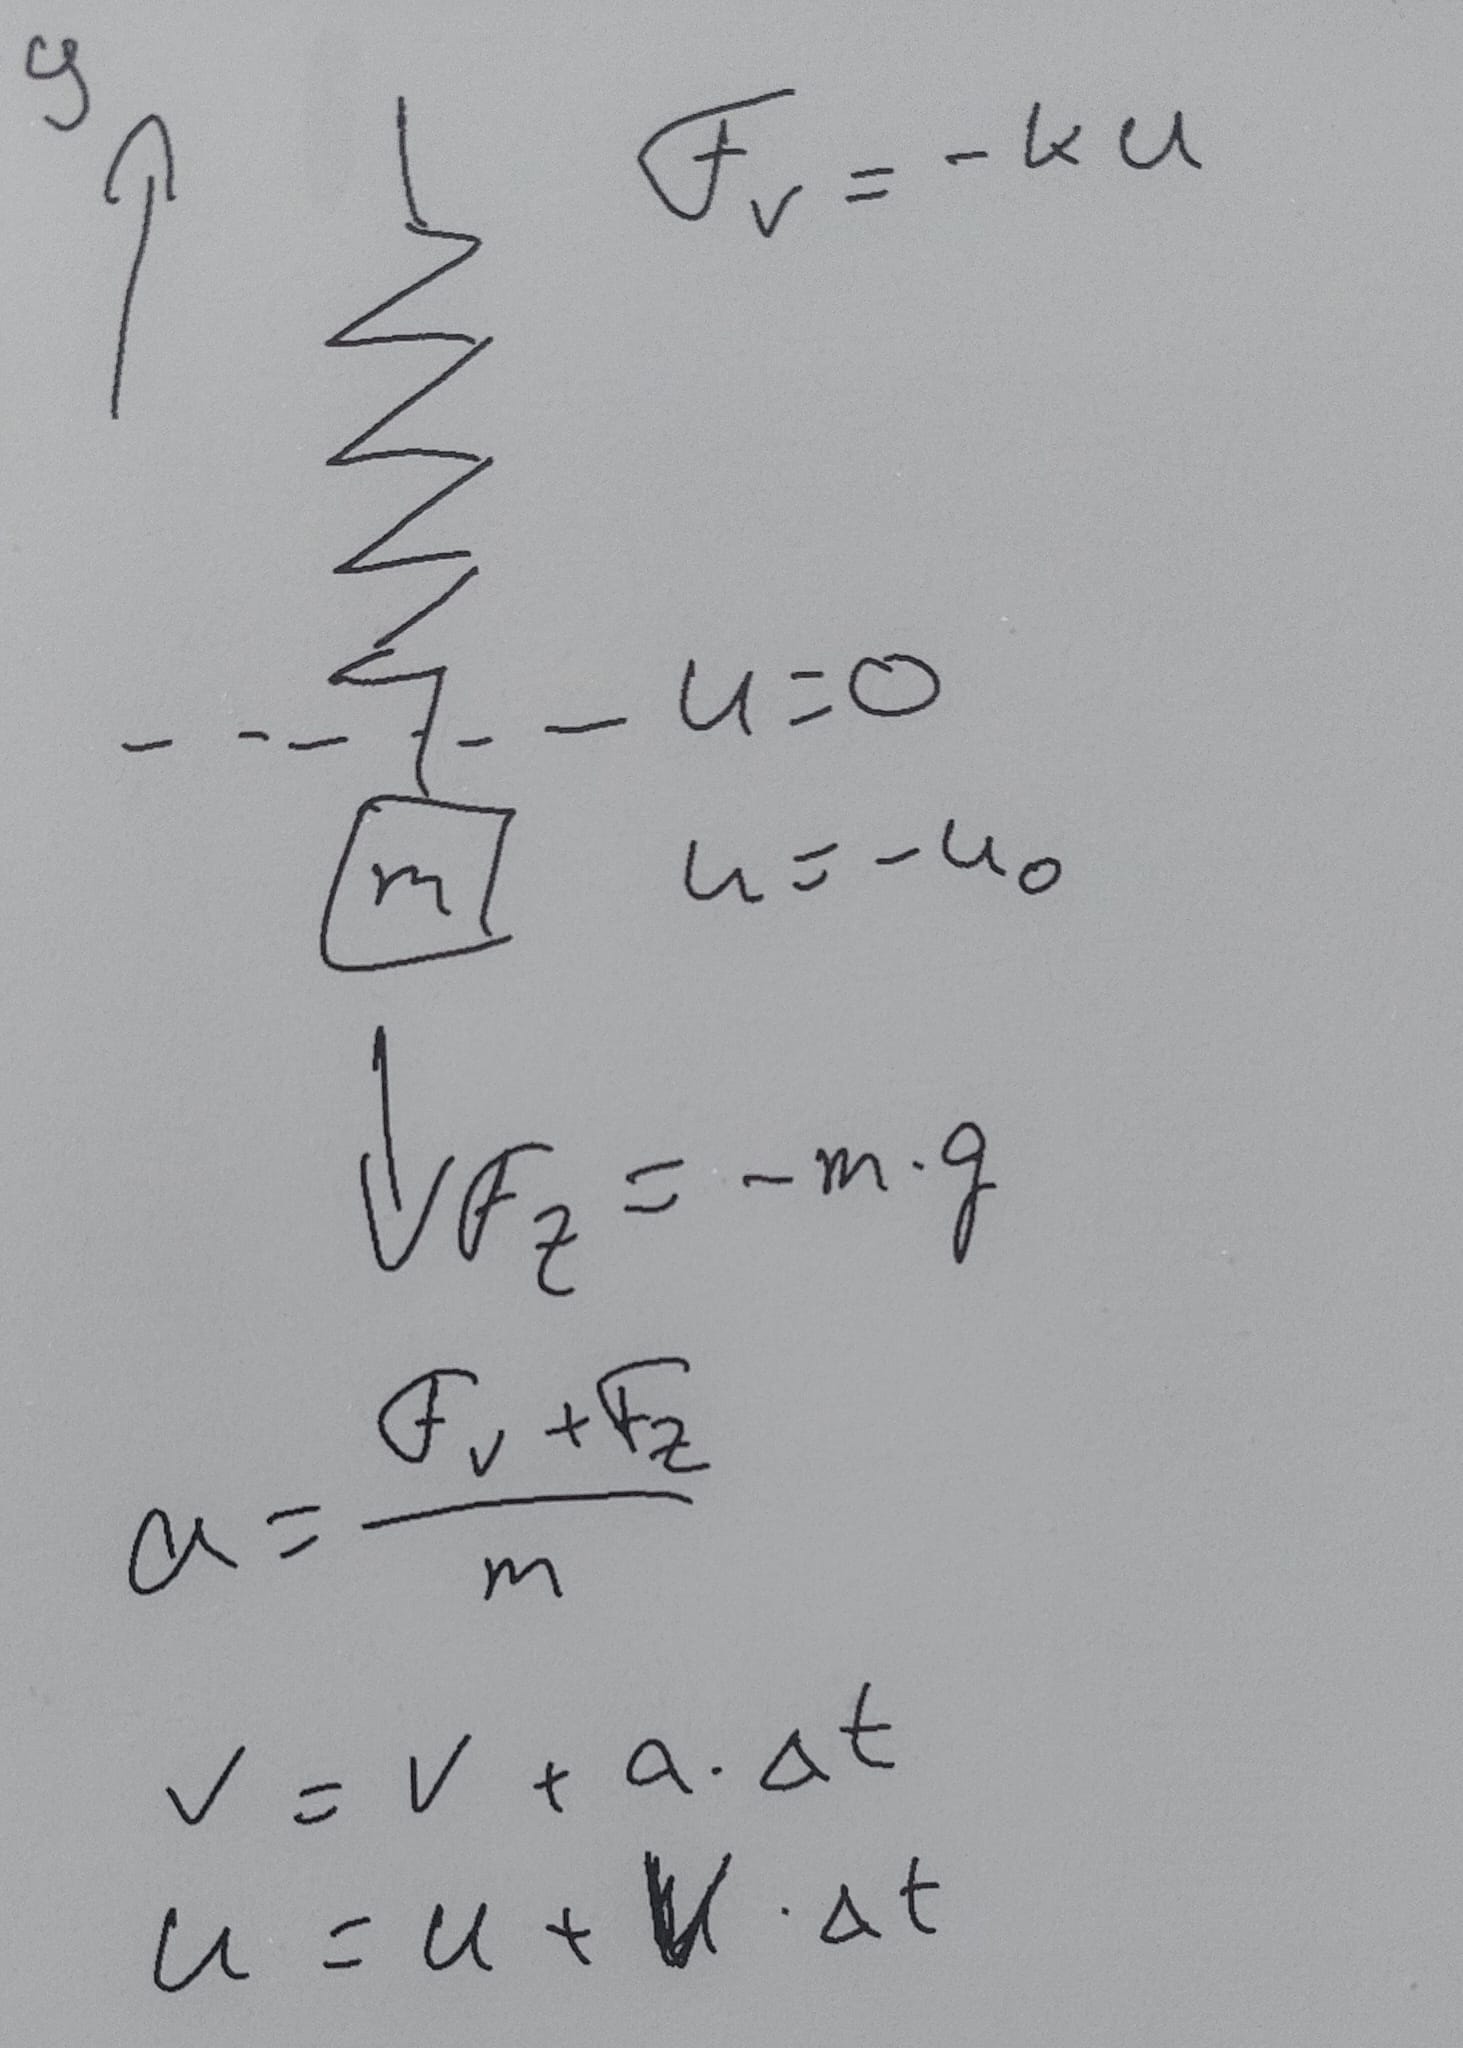 y
F_v = -ku
u=0
m
u=-u_0
F_z = -m·g
a = (F_v + F_z) / m
v = v + a·Δt
u = u + v·Δt